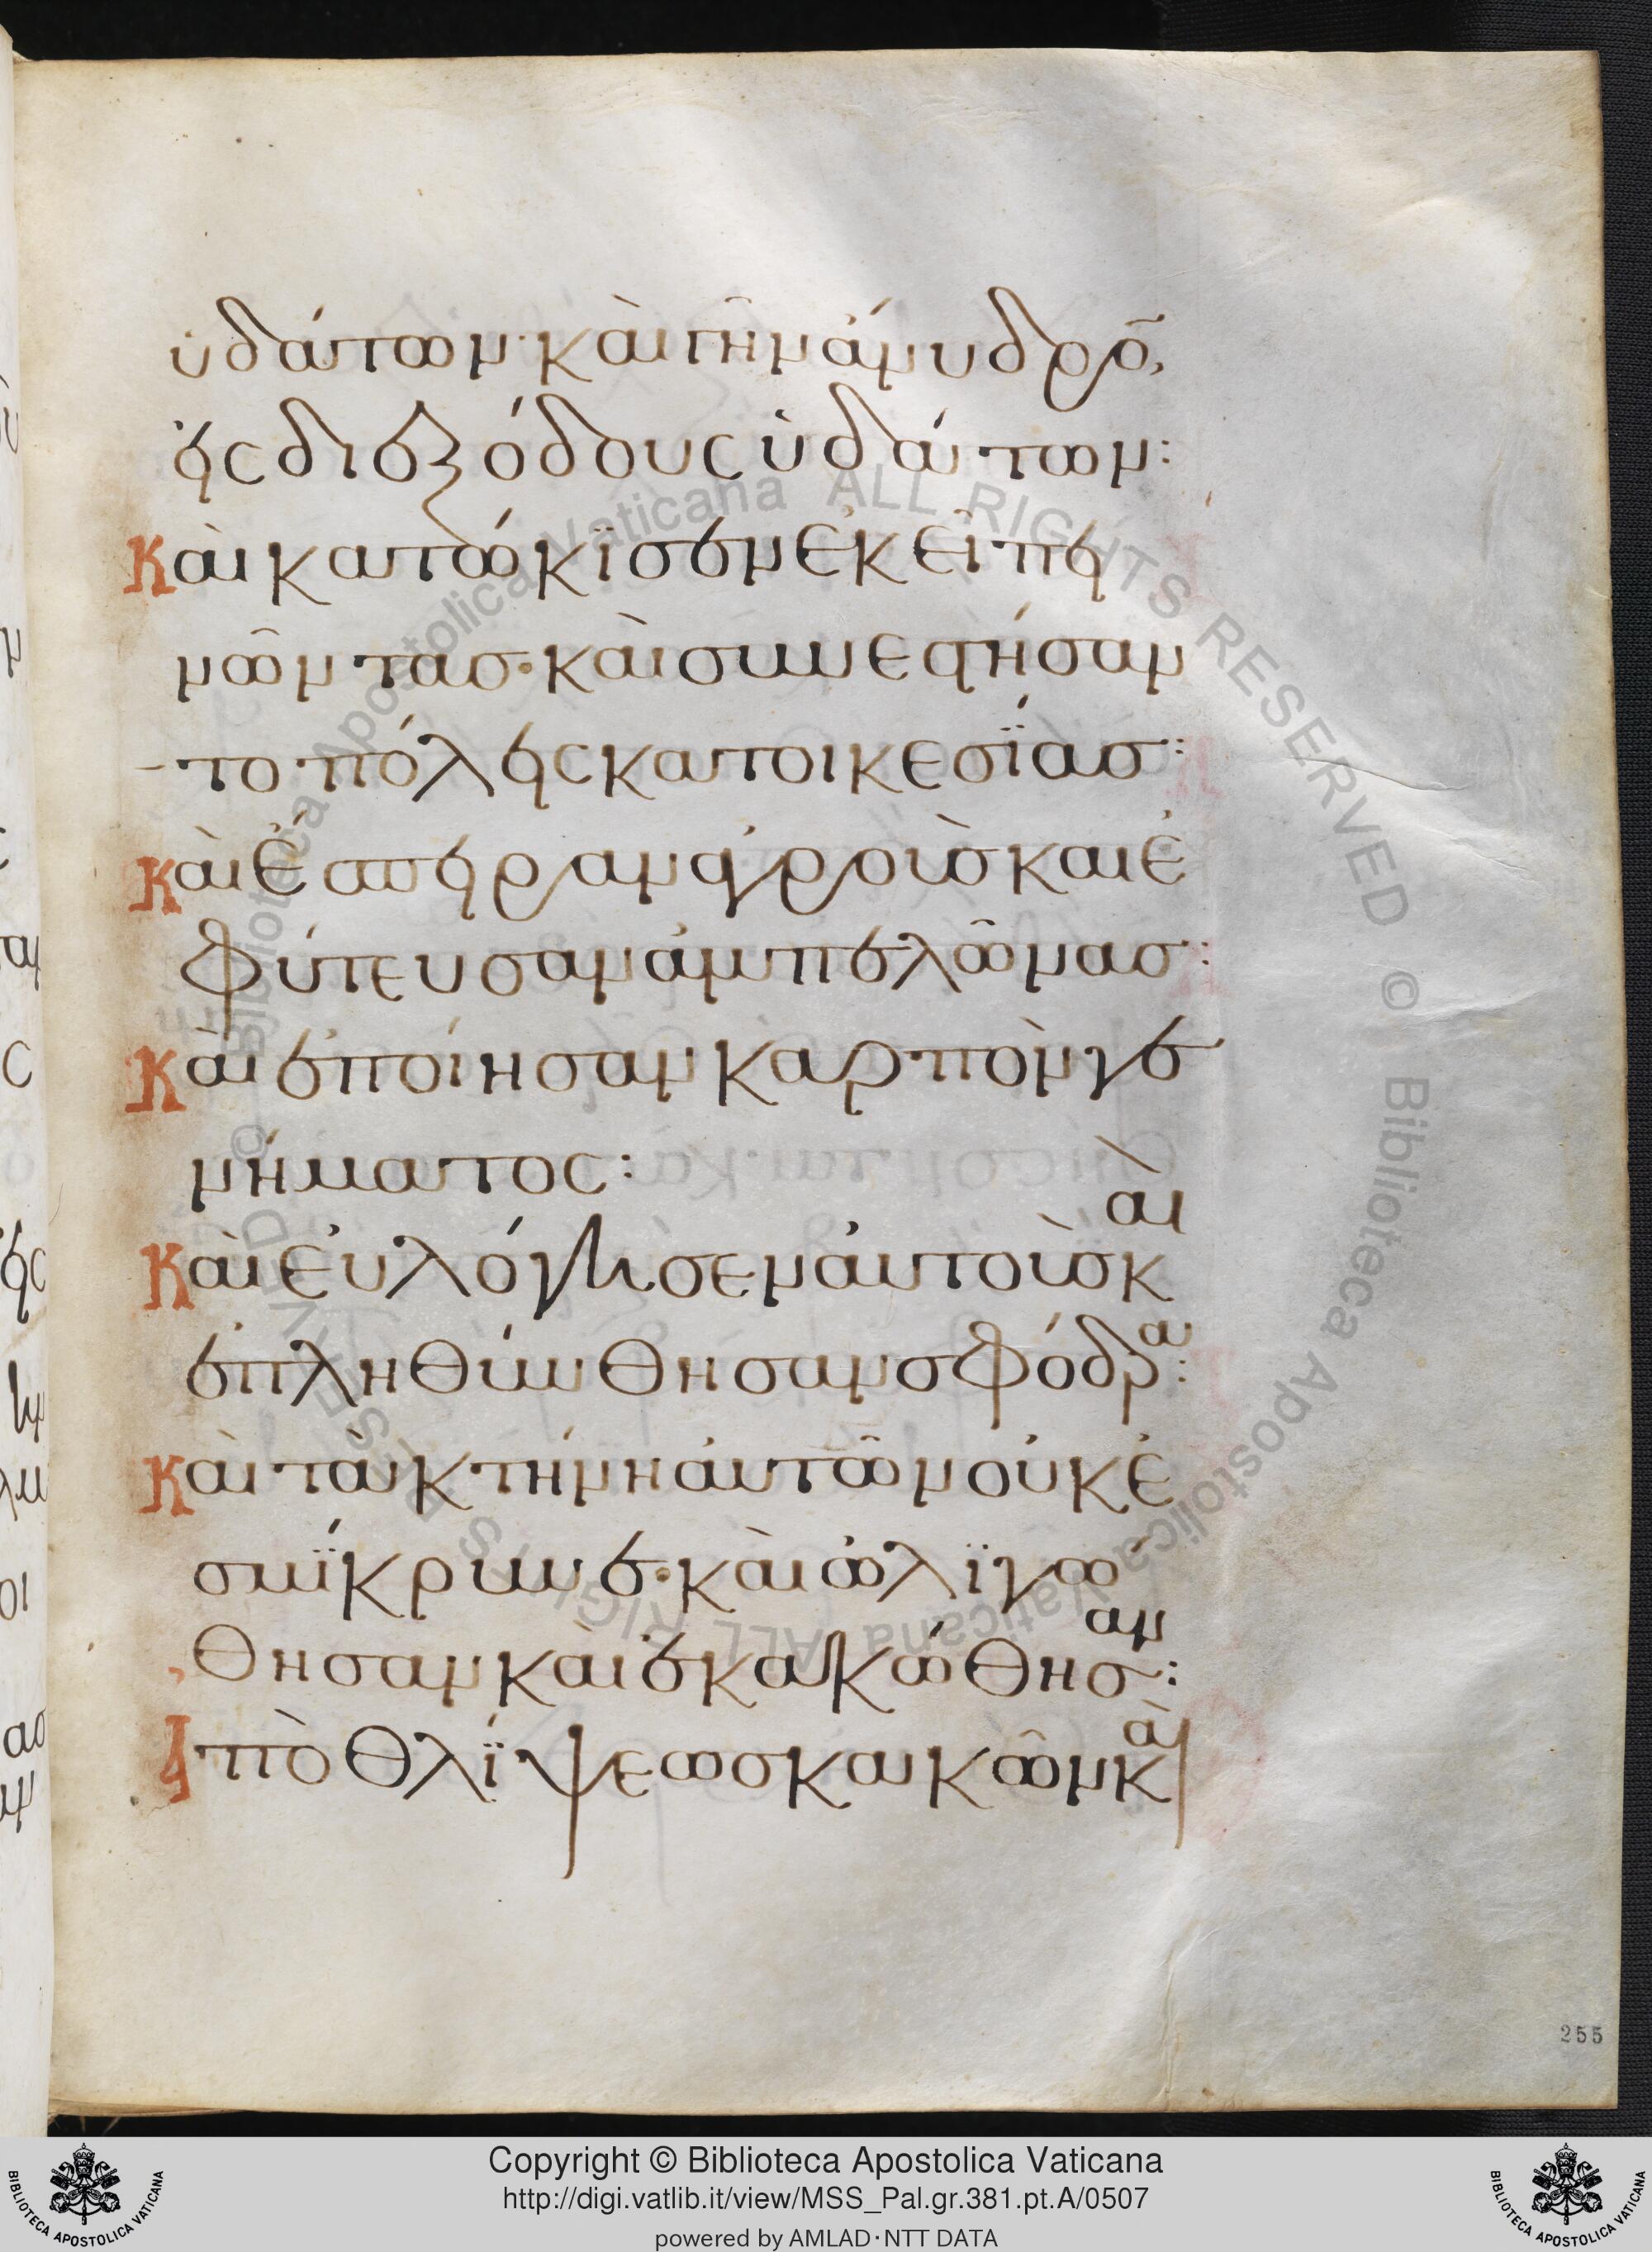 ὑδάτων· καὶ γῆν ἄνυδρο̅,
εἰς διεξόδους ὑδάτων:
Καὶ κατώκϊσεν ἐκεῖ πει
νῶντας· καὶ συνεστήσαν
το πόλεις κατοικεσΐας:
Καὶ ἔσπειραν ἀγροὺς καὶ ἐ
φύτευσαν ἀμπελῶνας:
Καὶ ἐποίησαν καρπὸν γε
νήματος:
Καὶ εὐλόγησεν αὐτοὺς καὶ
ἐπληθύνθησαν σφόδρα:
Καὶ τὰ κτήνη αὐτῶν οὐκ ἐ
σμΐκρυνε· καὶ ὠλϊγώ
θησαν καὶ ἐκακώθησαν:
Ἀπὸ θλΐψεως κακῶν καὶ
255
Copyright © Biblioteca Apostolica Vaticana
http://digi.vatlib.it/view/MSS_Pal.gr.381.pt.A/0507
powered by AMLAD·NTT DATA
BIBLIOTECA APOSTOLICA VATICANA
BIBLIOTECA APOSTOLICA VATICANA
© Biblioteca Apostolica Vaticana ALL RIGHTS RESERVED © Biblioteca Apostolica Vaticana ALL RIGHTS RESERVED